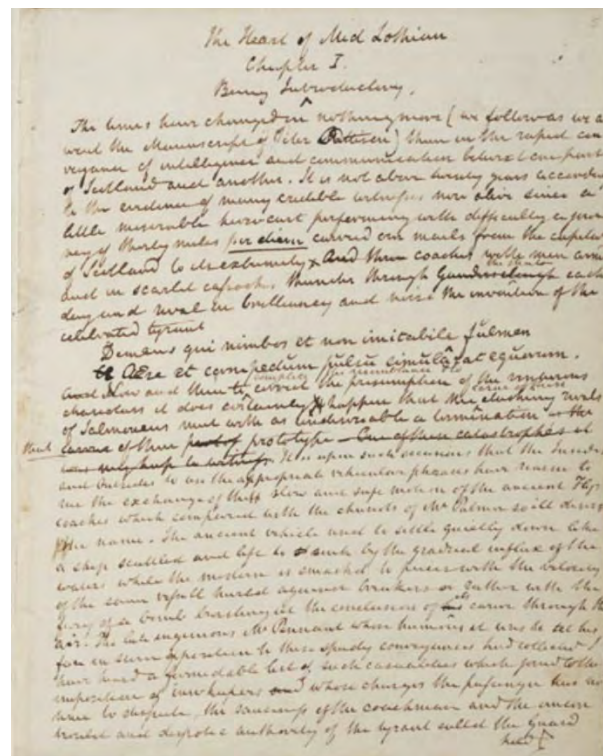 The Heart of Mid Lothian
Chapter I.
Being Introductory.
The times have changed in nothing more (we follow as we a
went the Manuscript of Peter Pattieson) than in the rapid con
veyance of intelligence and communication betwixt one part
of Scotland and another. It is not above twenty years according
to the evidence of many credible witnesses now alive since a
little miserable horsecart performing with difficulty a jour
ney of thirty miles per diem carried our mails from the capital
of Scotland to its extremity. And three coaches with men arm
and in scarlet cassocks thunder through each
day and rival in brilliancy and noise the invention of the
celebrated tyrant
Demens qui nimbos et non imitabile fulmen
Ære et cornipedum pulsu simularat equorum.
complete the resemblance & to
Now and then to correct the presumption of the venturous
charioteers it does certainly happen that the dashing rivals
of Salmoneus meet with as undesirable a termination as the
that of their prototype
It is upon such occasions that the Insides
and Outsides to use the appropriate vehicular phrases have reason to
rue the exchange of the slow and safe motion of the ancient Fly
coaches which compared with the chariots of Mr Palmer so ill deserve
the name. The ancient vehicle used to settle quietly down like
a ship scuttled and left to sink by the gradual influx of the
waters while the modern is smashed to pieces with the velocity
of the same vessell hurled against breakers or rather with the
fury of a bomb bursting at the conclusion of its career through the
air. The late ingenious Mr Pennant whose humour it was to set his
face in opposition to these speedy conveyances had collected I
have heard a formidable list of such casualties which joind to the
imposition of innkeepers whose charges the passenger has no
time to dispute, the sauciness of the coachman and the uncon
trould and despotic authority of the tyrant called the guard
held